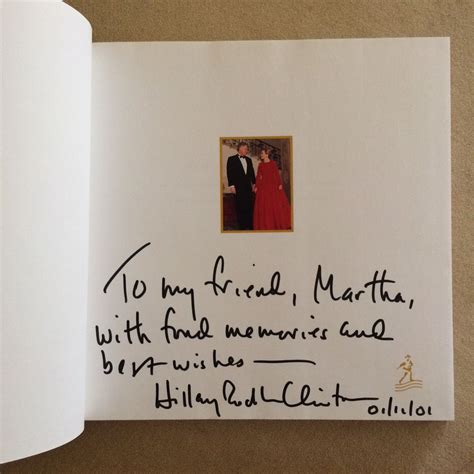 To my friend, Martha,
with fond memories and
best wishes —
Hillary Rodham Clinton 01/11/01